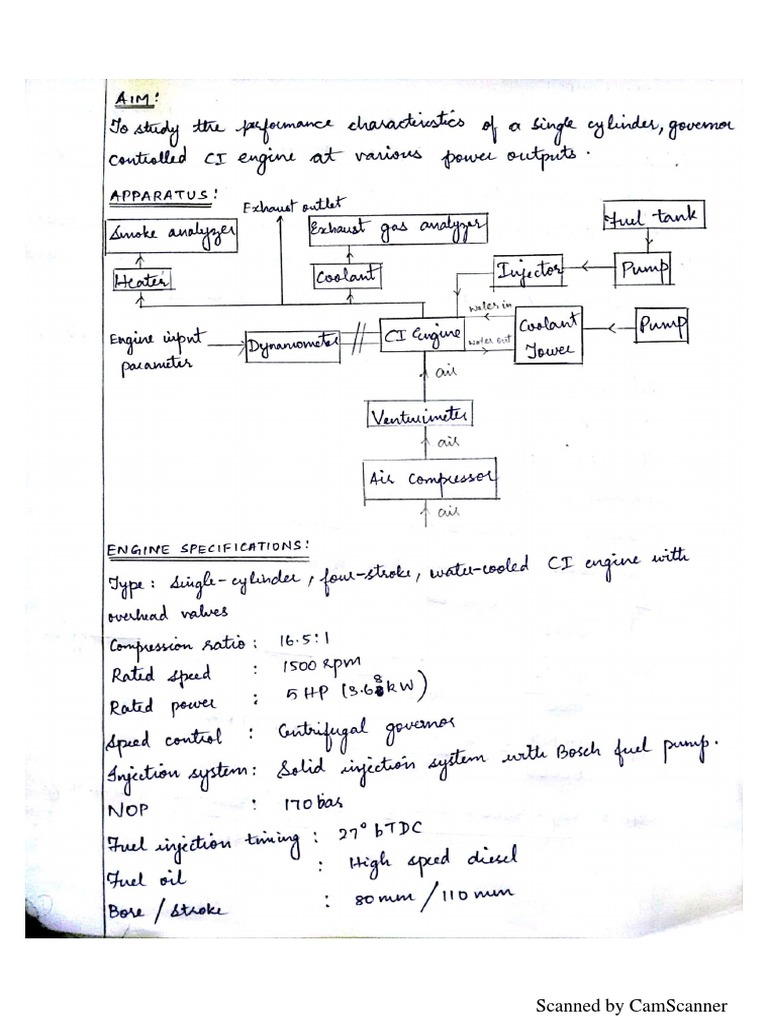 AIM:
To study the performance characteristics of a single cylinder, governor
controlled CI engine at various power outputs.
APPARATUS:
Exhaust outlet
Smoke analyzer
Exhaust gas analyzer
Fuel tank
Heater
Coolant
Injector
Pump
water in
Engine input
parameter
Dynamometer
CI Engine
water out
Coolant
Tower
Pump
air
Venturimeter
air
Air compressor
air
ENGINE SPECIFICATIONS:
Type: Single-cylinder, four-stroke, water-cooled CI engine with
overhead valves
Compression ratio : 16.5:1
Rated speed : 1500 rpm
Rated power : 5 HP (3.68kW)
Speed control : Centrifugal governor
Injection system: Solid injection system with Bosch fuel pump.
NOP : 170 bar
Fuel injection timing : 27° bTDC
Fuel oil : High speed diesel
Bore / Stroke : 80mm / 110 mm
Scanned by CamScanner